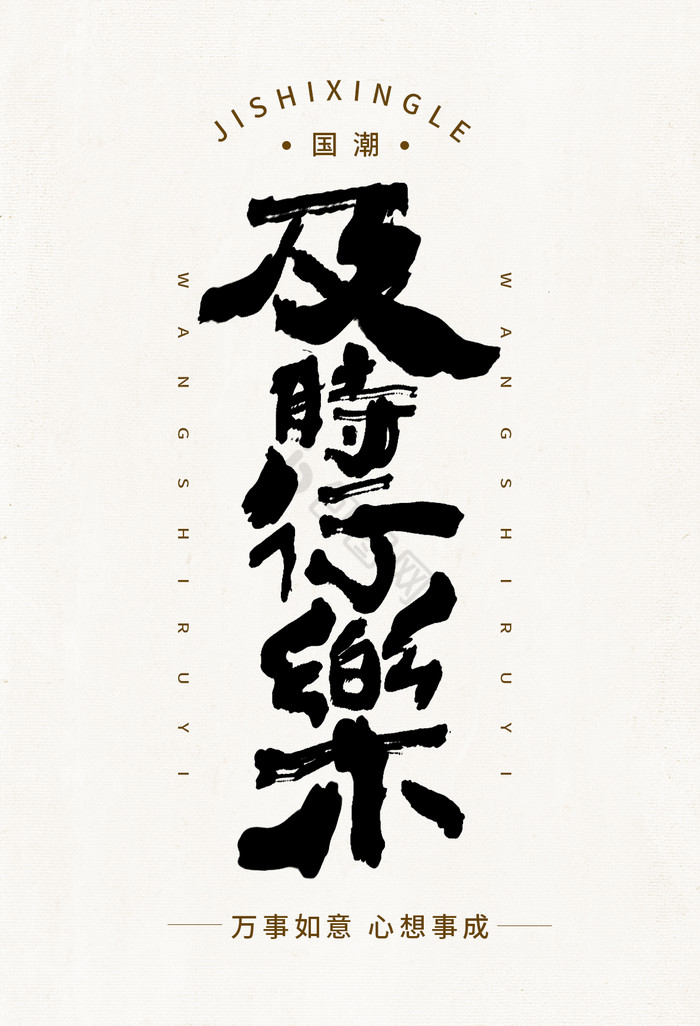 JISHIXINGLE
国潮
及時行樂
WANGSHIRUYI
WANGSHIRUYI
万事如意 心想事成